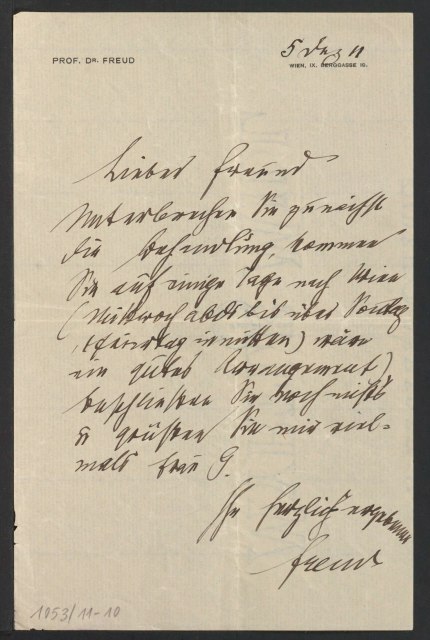 PROF. DR. FREUD
5 Dez 11
WIEN, IX. BERGGASSE 19.
Lieber Freund
Unterbrechen Sie zunächst
die Behandlung, kommen
Sie auf einige Tage nach Wien
(Mittwoch abds bis über Sonntag
, Feiertag inmitten) wäre
ein gutes Arrangement)
beschließen Sie noch nichts
u grüßen Sie mir viel-
mals Frau G.
Ihr herzlich ergebener
Freud
1053/11-10